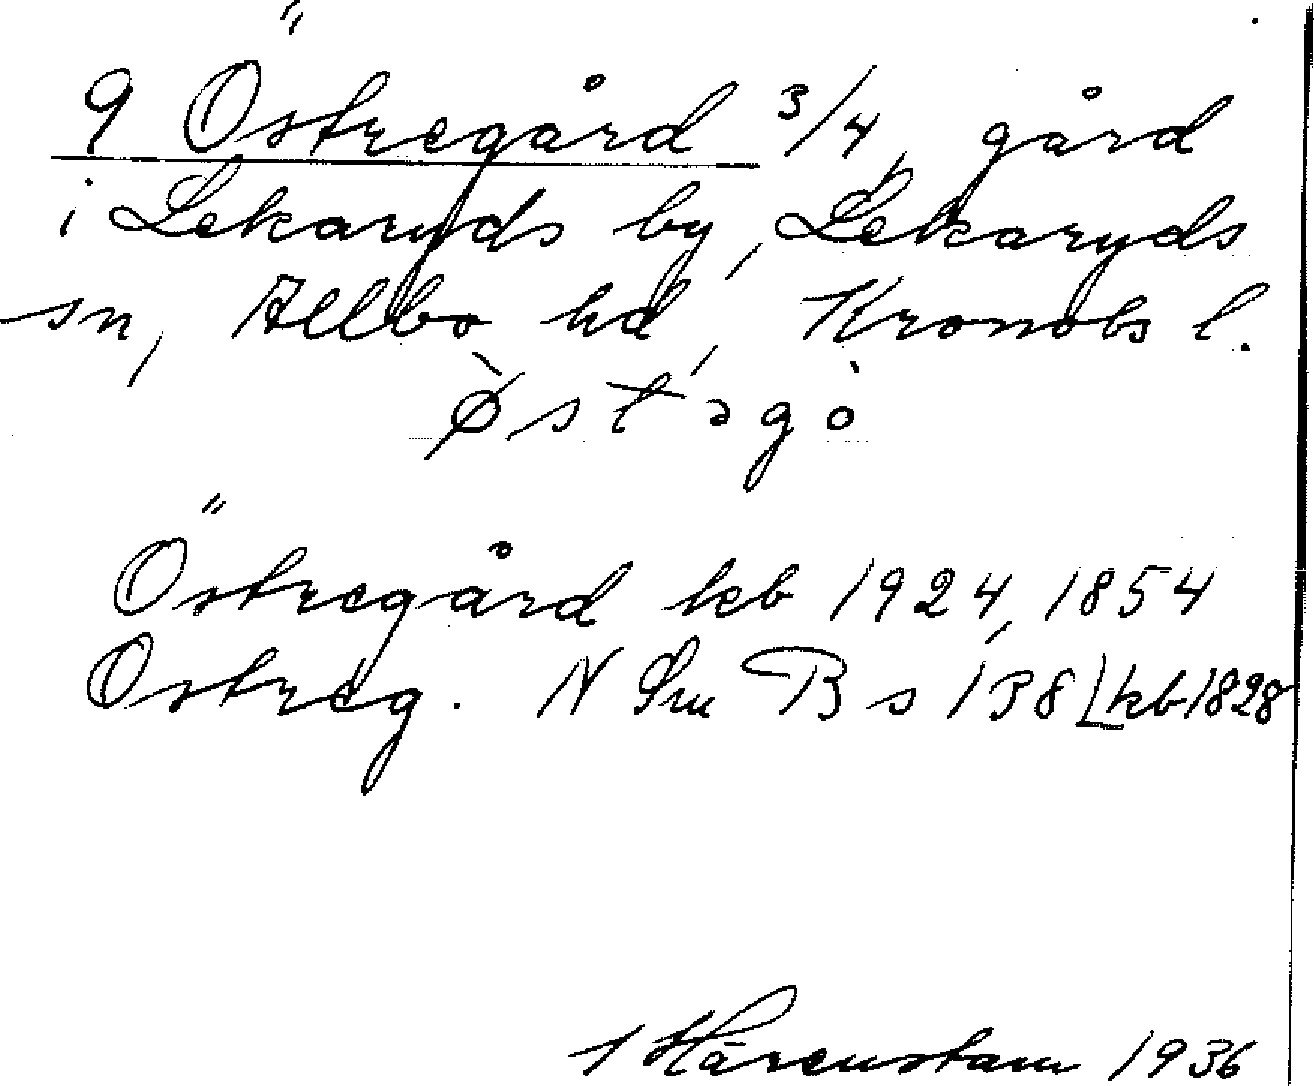 9 Östregård 3/4, gård
i Lekaryds by, Lekaryds
sn, Allbo hd, Kronobs l.
Östregård kb 1924, 1854
Östreg. N Sm B s 138 kb 1828
Härenstam 1936